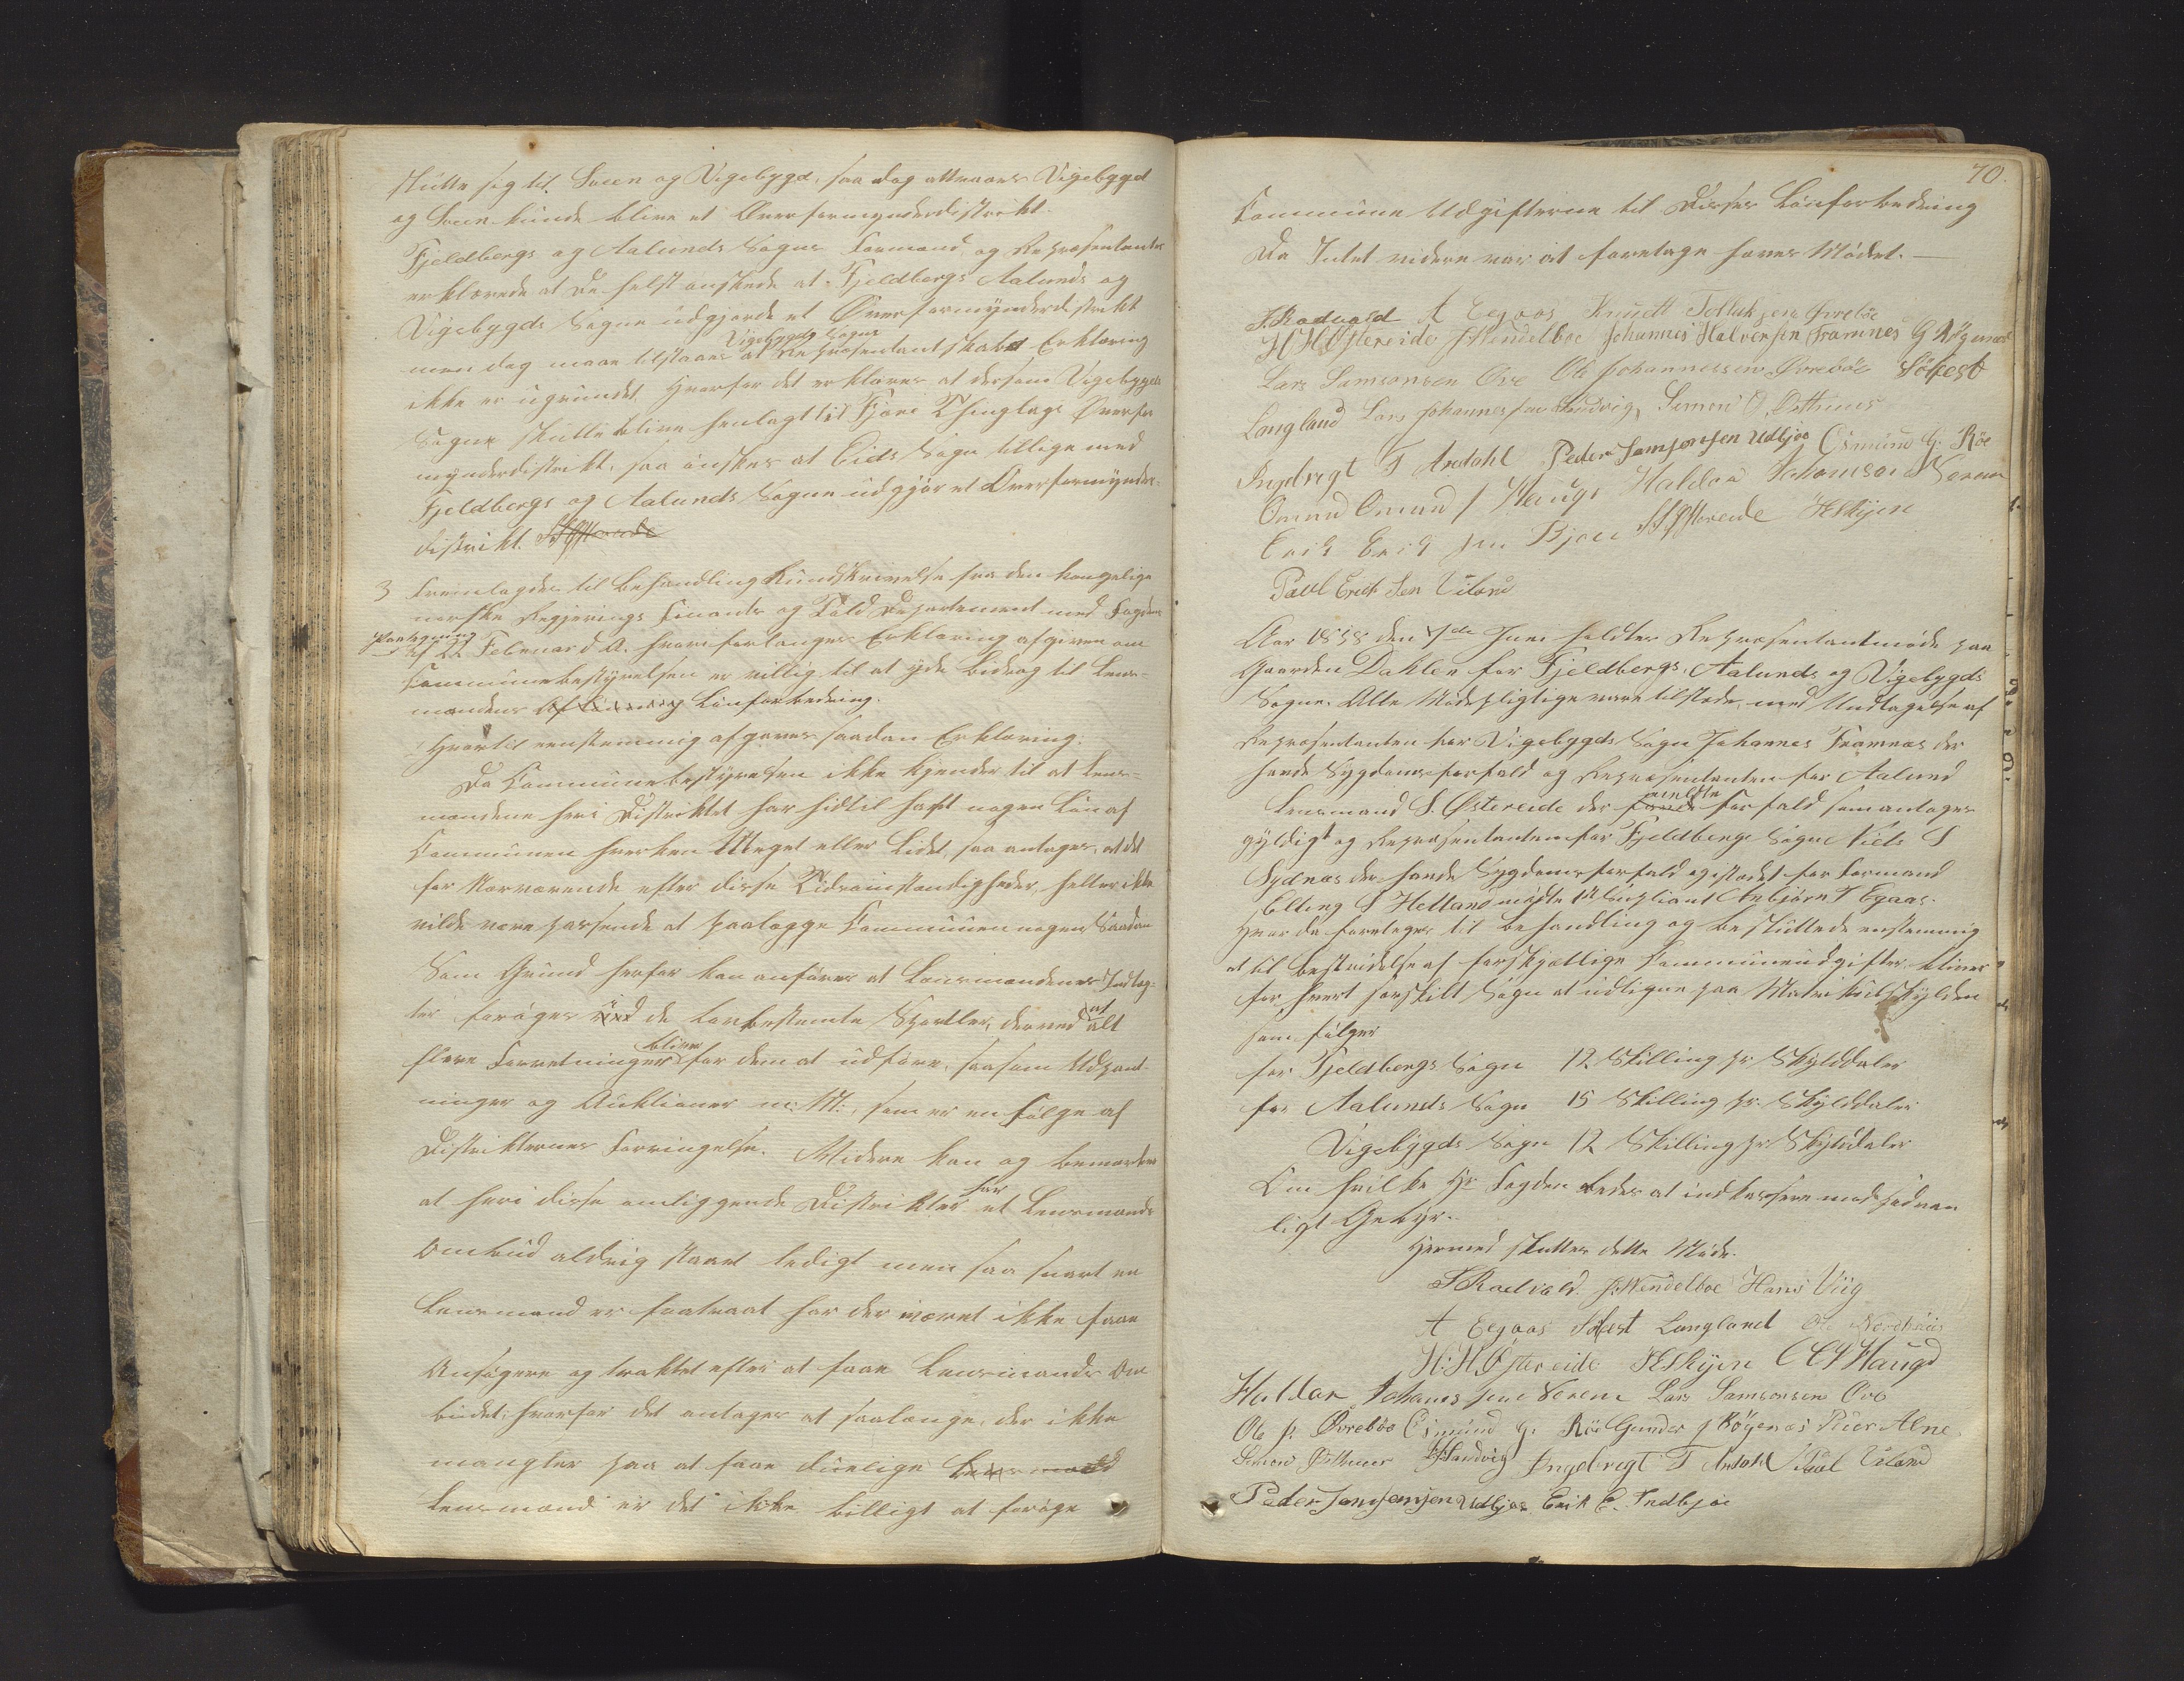 slutte sig til Sveen og Vigebygd, saa dog attraaes Vigebygd
og Sveen kunde blive et Overformynderdistrikt.
Fjeldbergs og Aalunds Sogns Formænd og Repræsentanter
erklærede at de helst ønskede at Fjeldbergs Aalunds og
Vigebygds Sogne udgjorde et Overformynderdistrikt
men dog maae tilstaaes at Vigebygds Sogns Repræsentantskabs Erklæring
ikke er ugrundet, hvorfor det erklæres at dersom Vigebygds
Sogn skulle blive henlagt til Fjære Thinglags Overfor
mynderdistrikt, saa ønskes at Eids Sogn tillige med
Fjeldbergs og Aalunds Sogne udgjør et Overformynder-
distrikt.
3 Fremlagdes til Behandling Rundskrivelse fra den kongelige
norske Regjerings Finants og Told Departement med Fogdens
Paategning af 22 Februar d. A. hvori forlanges Erklæring afgiven om
Communebestyrelsen er villig til at yde Bidrag til Lens-
mændenes Lønforbedring.
Hvortil eenstemmig afgaves saadan Erklæring:
Da Communebestyrelsen ikke kjender til at Lens-
mændene her i Distriktet har hidtil havt nogen Løn af
Communen hverken Meget eller Lidet, saa antages, at det
for Nærværende efter disse Tidsomstændigheder, heller ikke
vilde være passende at paalægge Communen nogen Saadan
Som Grund herfor kan anføres at Lensmændenes Indtæg-
ter forøges ved de lovbestemte Sportler, derved at alt
flere Forretninger bliver for dem at udføre, saasom Udpant-
ninger og Auktioner m: M:, som er en følge af
Distrikternes Forringelse. Videre kan og bemærkes
at her i disse omliggende Distrikter har et Lensmands
Ombud aldrig staaet ledigt men saa snart en
Lensmand er fratraadt har der været ikke faae
Ansøgere og tragtet efter at faae Lensmands Om
budet, hvorfor det antages at saalænge, der ikke
mangler paa at faae duelige
Lensmænd er det ikke billigt at forøge
70.
Commune Udgifterne til disses Lønforbedring
Da Intet videre var at foretage hæves Mødet.—
S. Rødvold A Eegaas Knudt Tollaksen Øvrebøe
H H Østereide J Wendelboe Johannes Halvorsen Framnes G Røgenæs
Lars Samsonsen Øve Ole Johannessen Øvrebøe Søfest
Langland Lars Johannessen Sandvig, Simon O Østhuus
Ingebregt T Aredahl Peder Samsonsen Udbjoe Osmund G. Røe
Omund Omund J Haugs Haldor Johansen Verene
Erik Erik sen Bjoe S. Østereide Skkyen
Paul Erik Sen Viland
Aar 1858 den 7de Juni holdtes Repræsentantmøde paa
Gaarden Dahlen for Fjeldbergs, Aalunds og Vigebygds
Sogne. Alle Mødepligtige vare tilstede, med Undtagelse af
Repræsentanten for Vigebygds Sogn Johannes Framnæs der
havde Sygdomsforfald og Repræsentanten for Aalund
Lensmand S. Østereide der meldte Forfald som antages
gyldigt og Repræsentanten for Fjeldbergs Sogn Niels S
Sydnæs der havde Sygdomsforfald og istedet for Formand
Elling S Helland mødte 1ste Supliant Anbjørn T Egaas.
Hvor da foretages til Behandling og besluttede enstemmig
at til Bestridelse af forskjællige Communeudgifter bliver
for hvert særskilt Sogn at udligne paa Matrikulskylden
som følger
for Fjeldbergs Sogn 12 Skilling pr Skylddaler
for Aalunds Sogn 15 Skilling pr. Skylddaler
Vigebygds Sogn 12 Skilling pr Skylddaler
Om hvilke Hr Fogden bedes at indkassere mod sædvan
ligt Gebyr.
Hermed sluttes dette Møde.
S Rødvold. J. Wendelboe Hans Viig
A Eegaas Søfest Langland Ole Nordhuus
H. H. Østereide Skkyen O O Haugd
Haldor Johannssen Verene Lars Samsonsen Øve
Ole J. Øvrebøe Osmund G. Røe Gunder J Røgenæs Peder Alne
Simon Østhuus L J Sandvig Ingebregt T Ardahl Paul Viland
Peder Samsonsen Udbjoe Erik E. Indbjoe